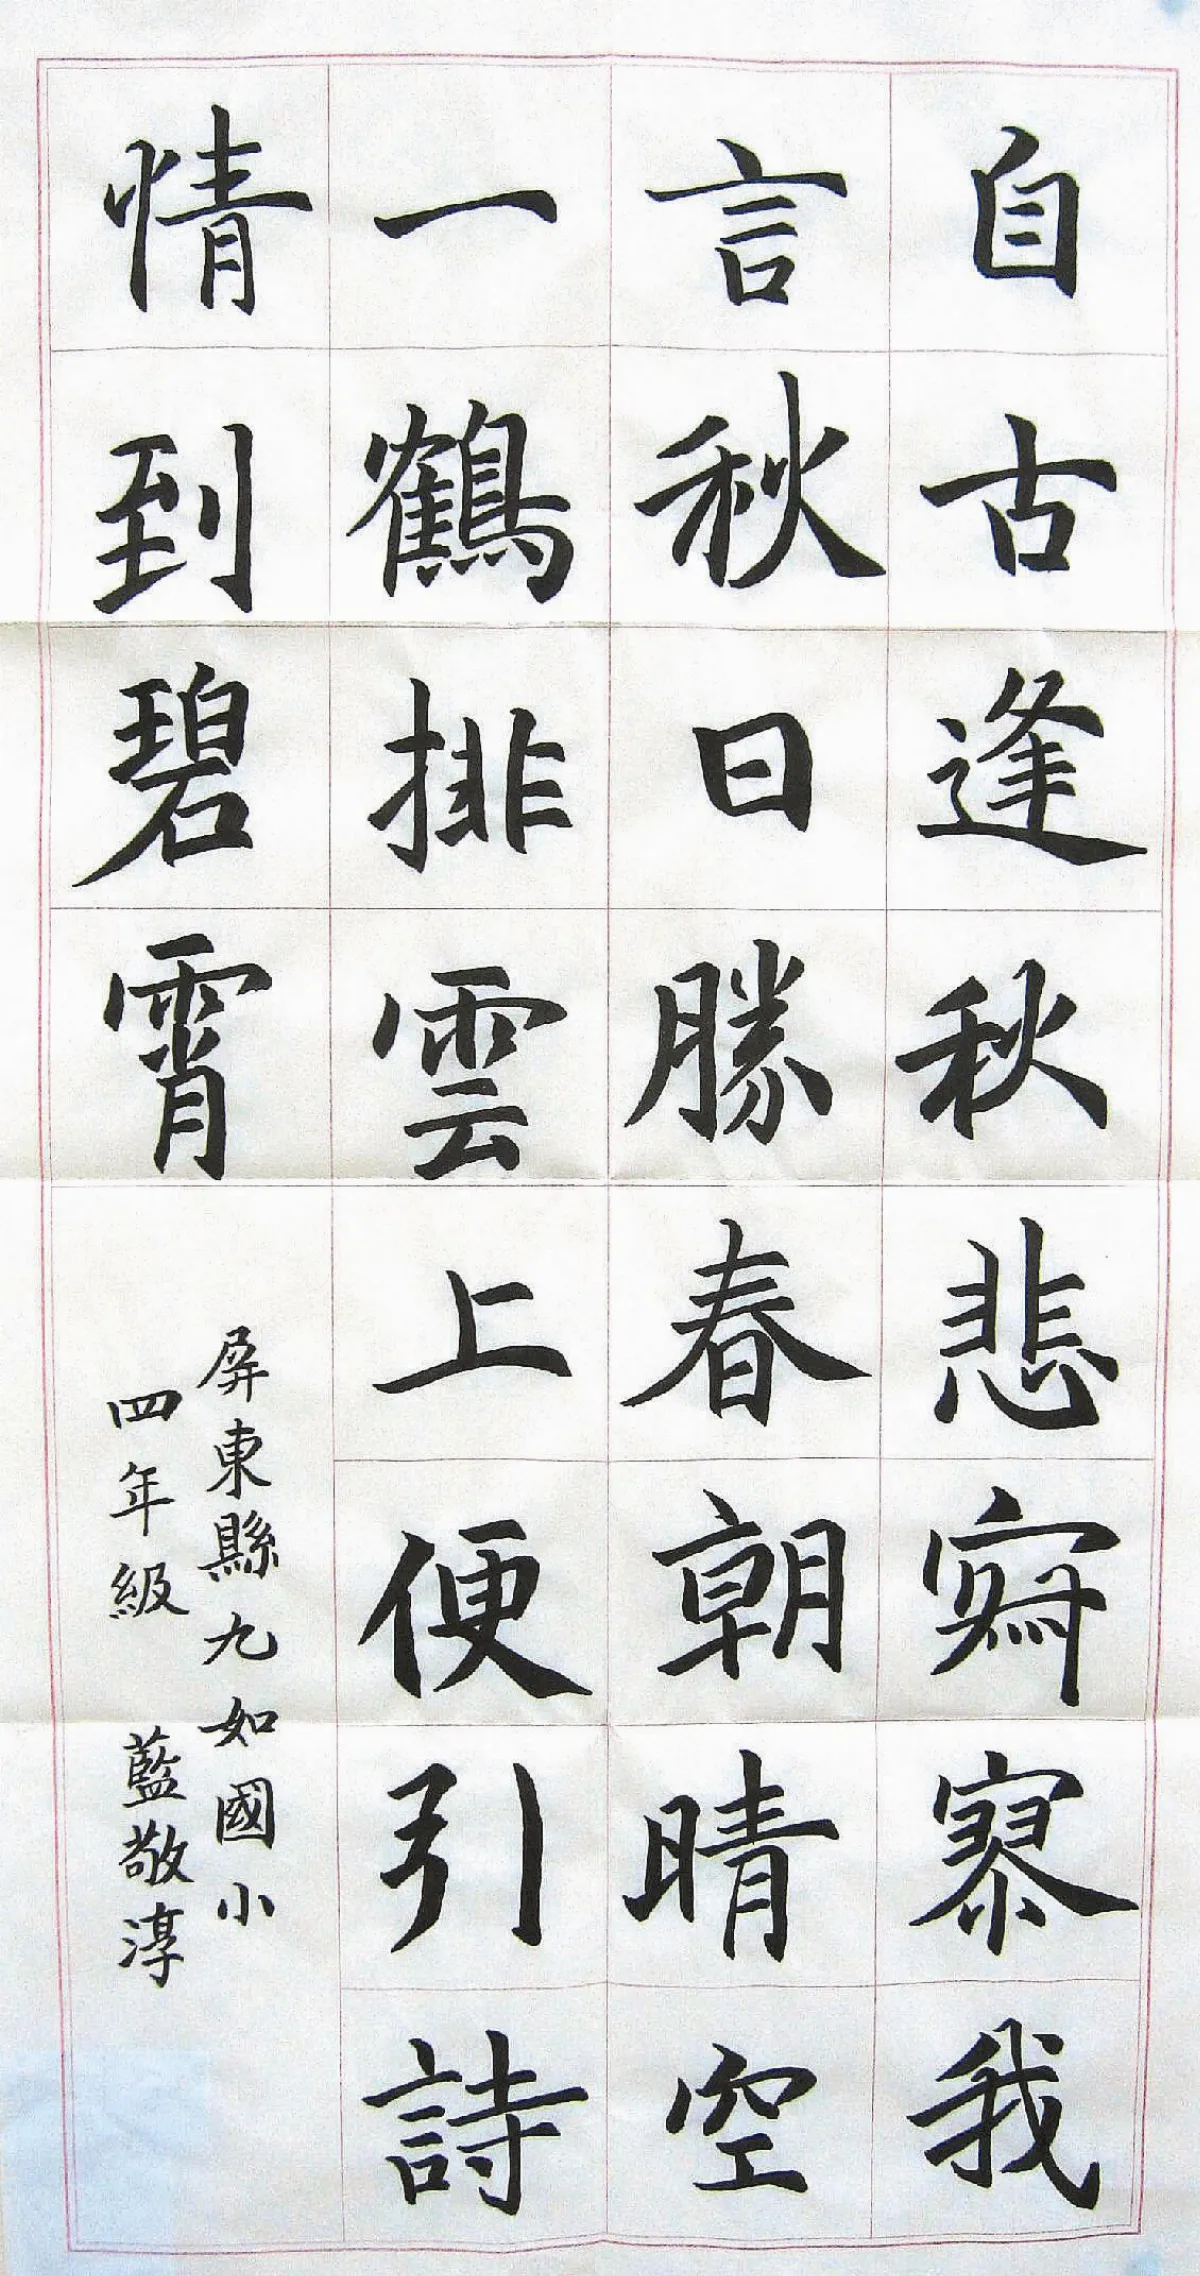 自古逢秋悲寂寥我
言秋日勝春朝晴空
一鶴排雲上便引詩
情到碧霄
屏東縣九如國小
四年級 藍敬淳